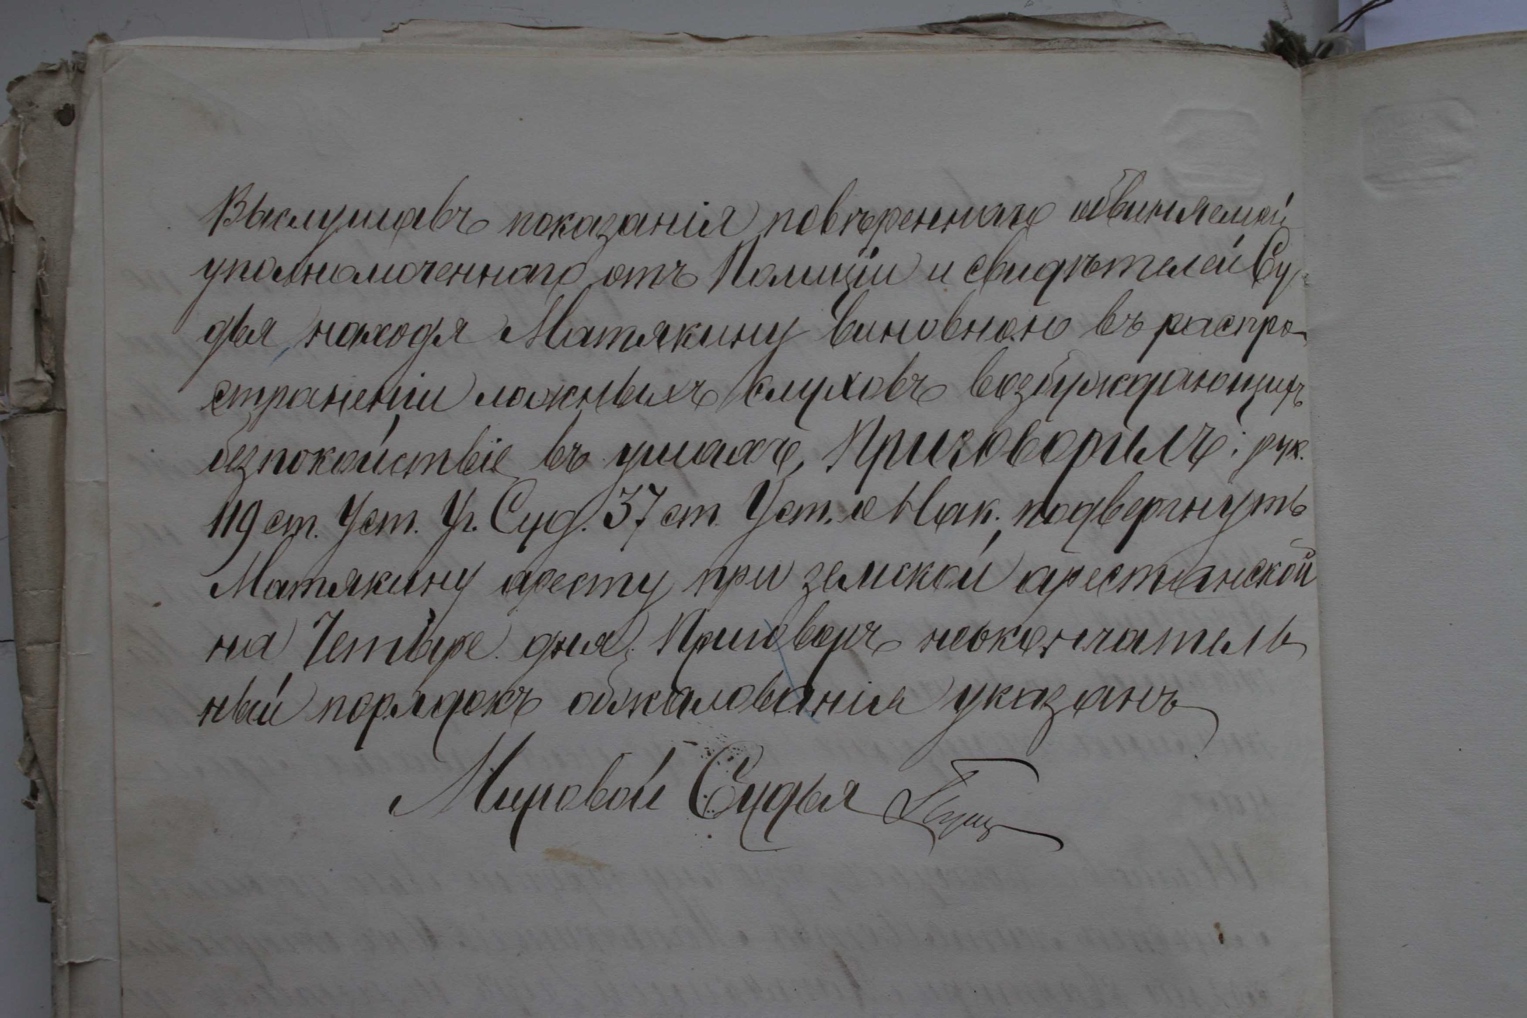 Выслушавъ показанія повѣреннаго обвиняемой
уполномоченнаго отъ Полиціи и свидѣтелей Су-
дья находя Матякину виновною въ распро-
страненіи ложныхъ слуховъ возбуждающихъ
безпокойствіе въ умахъ, Приговорилъ: рук.
119 ст. Уст. Уг. Суд. 37 ст. Уст. о Нак. подвергнуть
Матякину аресту при земской арестанской
на Четыре дня. Приговоръ неокончатель
ный порядокъ обжалованія указанъ
Мировой Судья